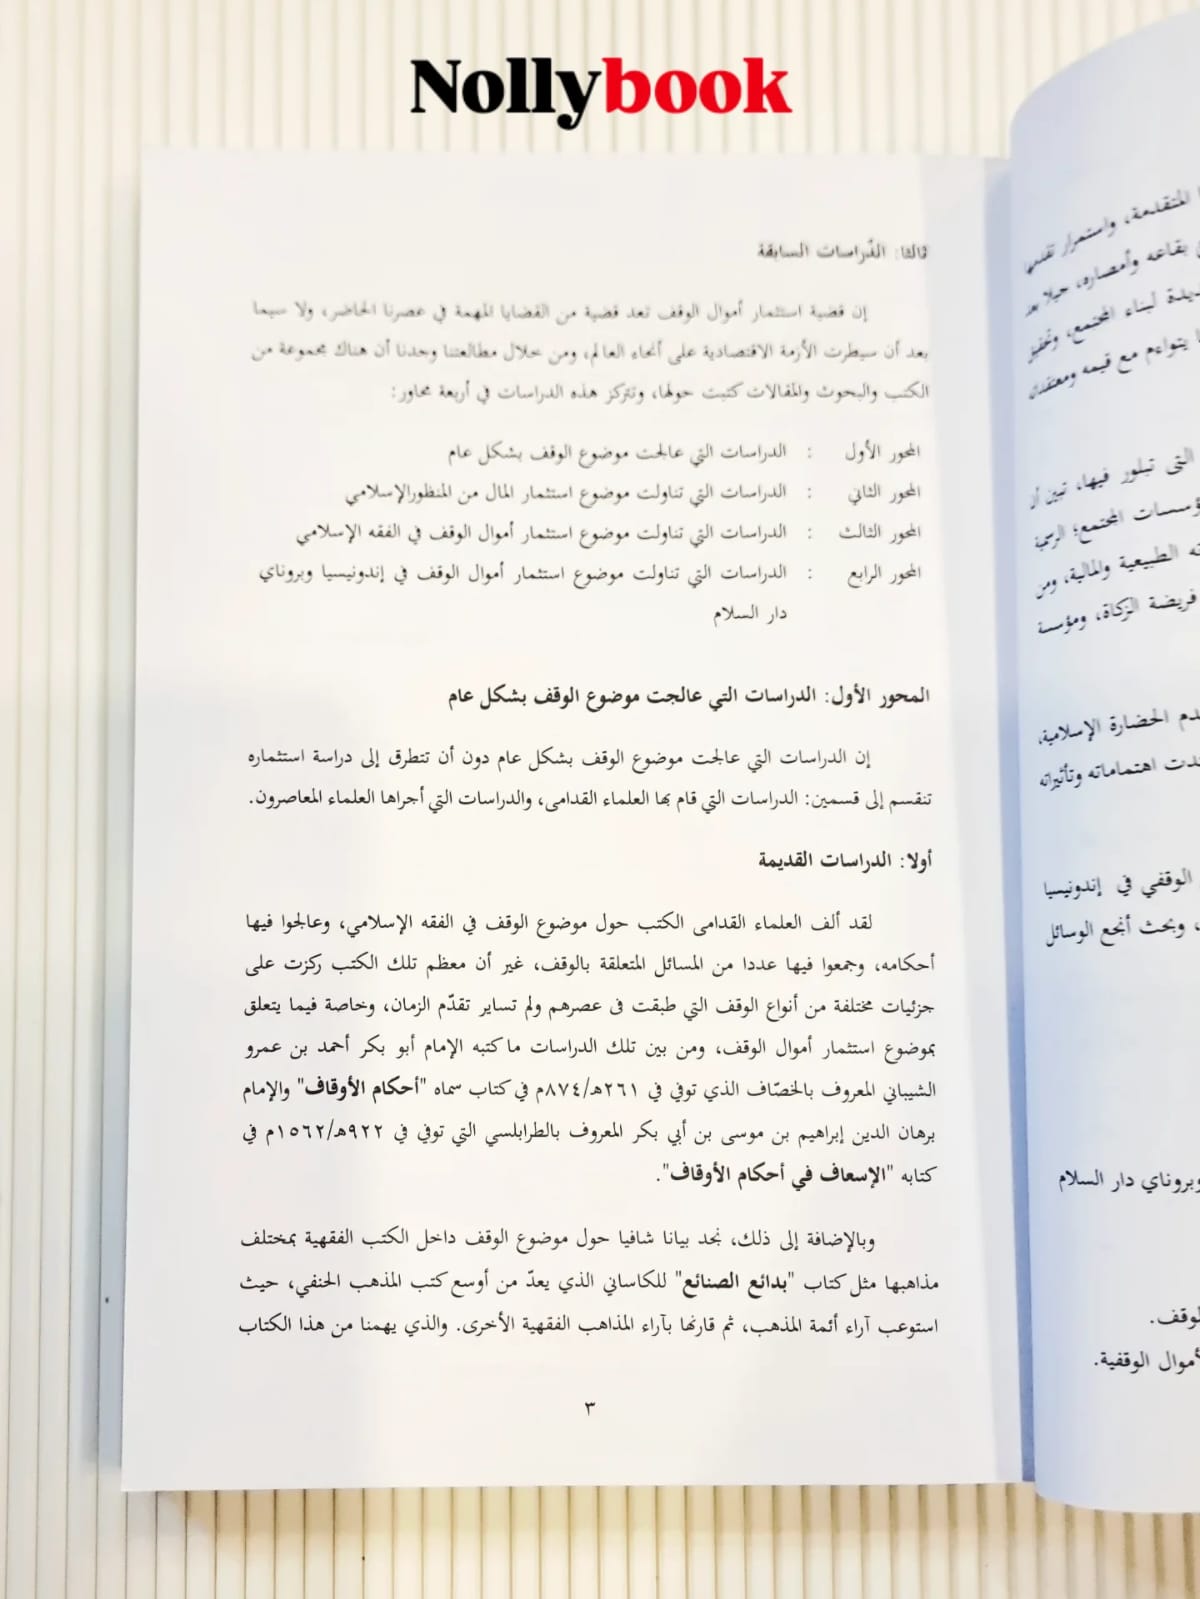 Nollybook
ثالثا: الدّراسات السابقة
إن قضية استثمار أموال الوقف تعد قضية من القضايا المهمة في عصرنا الحاضر، ولا سيما
بعد أن سيطرت الأزمة الاقتصادية على أنحاء العالم، ومن خلال مطالعتنا وجدنا أن هناك مجموعة من
الكتب والبحوث والمقالات كتبت حولها، وتتركز هذه الدراسات في أربعة محاور:
المحور الأول : الدراسات التي عالجت موضوع الوقف بشكل عام
المحور الثاني : الدراسات التي تناولت موضوع استثمار المال من المنظورالإسلامي
المحور الثالث : الدراسات التي تناولت موضوع استثمار أموال الوقف في الفقه الإسلامي
المحور الرابع : الدراسات التي تناولت موضوع استثمار أموال الوقف في إندونيسيا وبروناي
دار السلام
المحور الأول: الدراسات التي عالجت موضوع الوقف بشكل عام
إن الدراسات التي عالجت موضوع الوقف بشكل عام دون أن تتطرق إلى دراسة استثماره
تنقسم إلى قسمين: الدراسات التي قام بها العلماء القدامى، والدراسات التي أجراها العلماء المعاصرون.
أولا: الدراسات القديمة
لقد ألف العلماء القدامى الكتب حول موضوع الوقف في الفقه الإسلامي، وعالجوا فيها
أحكامه، وجمعوا فيها عددا من المسائل المتعلقة بالوقف، غير أن معظم تلك الكتب ركزت على
جزئيات مختلفة من أنواع الوقف التي طبقت فى عصرهم ولم تساير تقدّم الزمان، وخاصة فيما يتعلق
بموضوع استثمار أموال الوقف، ومن بين تلك الدراسات ما كتبه الإمام أبو بكر أحمد بن عمرو
الشيباني المعروف بالخصّاف الذي توفي في ٢٦١هـ/٨٧٤م في كتاب سماه "أحكام الأوقاف" والإمام
برهان الدين إبراهيم بن موسى بن أبي بكر المعروف بالطرابلسي التي توفي في ٩٢٢هـ/١٥٦٢م في
كتابه "الإسعاف في أحكام الأوقاف".
وبالإضافة إلى ذلك، نجد بيانا شافيا حول موضوع الوقف داخل الكتب الفقهية بمختلف
مذاهبها مثل كتاب "بدائع الصنائع" للكاساني الذي يعدّ من أوسع كتب المذهب الحنفي، حيث
استوعب آراء أئمة المذهب، ثم قارنها بآراء المذاهب الفقهية الأخرى. والذي يهمنا من هذا الكتاب
٣
المتقدمة، واستمرار تقدمها
بقاعه وأمصاره، جيلا بعد
لبناء المجتمع، وتحقيق
يتواءم مع قيمه ومعتقداته
التى تبلور فيها، تبين أن
المجتمع؛ الرسمية
الطبيعية والمالية، ومن
فريضة الزكاة، ومؤسسة
الحضارة الإسلامية،
اهتماماته وتأثيراته
الوقفي في إندونيسيا
، وبحث أنجع الوسائل
وبروناي دار السلام
لوقف.
الوقفية.